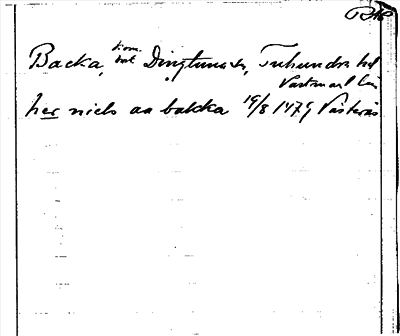 Backa, Dingtuna sn, Tuhundra hd
Västmanl län
her niels aa bakka 19/8 1479 Västerås